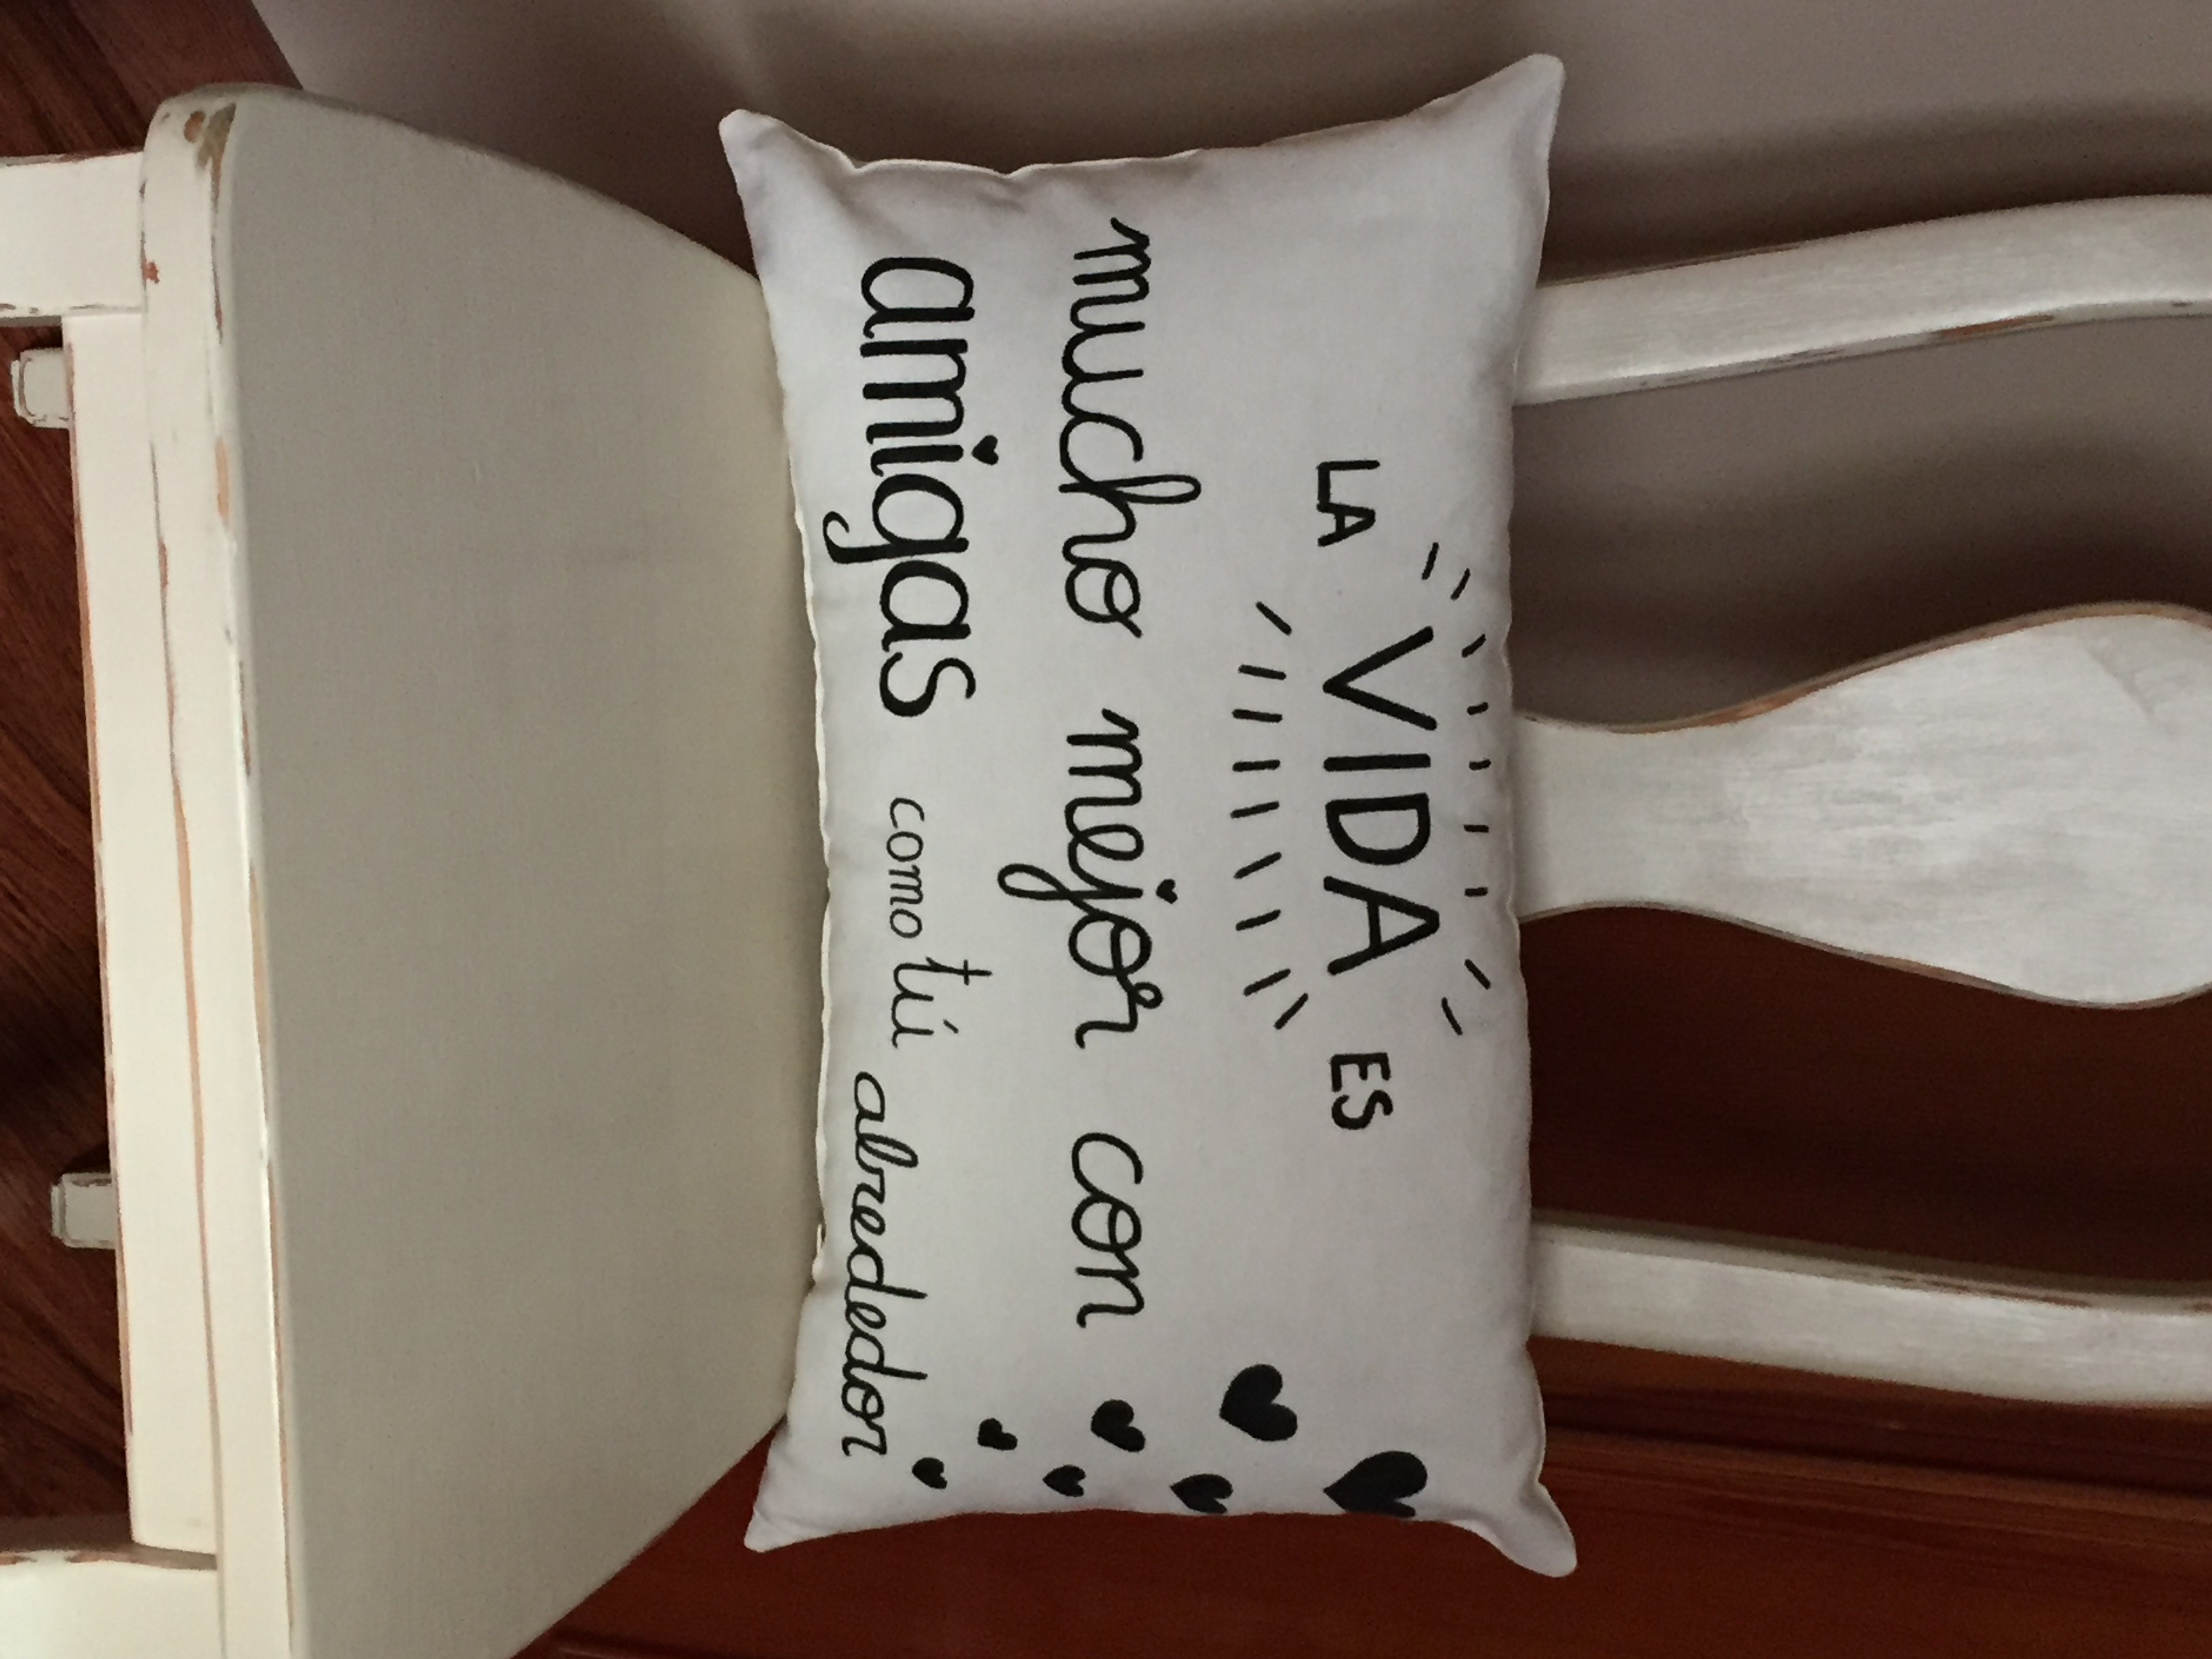 LA VIDA ES
mucho mejor con
amigas como tú abrededor